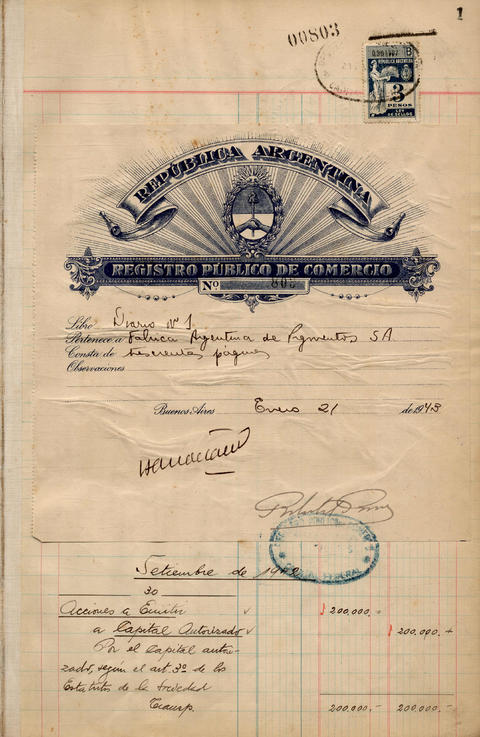 1
00803
B
REPUBLICA ARGENTINA
3
PESOS
LEY
DE SELLOS
REPÚBLICA ARGENTINA
REGISTRO PÚBLICO DE COMERCIO
Nº 803
Libro Diario Nº 1
Pertenece a Fabrica Argentina de Pigmentos S.A.
Consta de trescientas páginas
Observaciones
Buenos Aires Enero 21 de 1943
CAPITAL FEDERAL
Setiembre de 1942
30
Acciones a Emitir 200.000.-
a Capital Autorizado 200.000.-
Por el Capital autori-
zado, según el art. 3º de los
Estatutos de la sociedad
Transp. 200.000.- 200.000.-